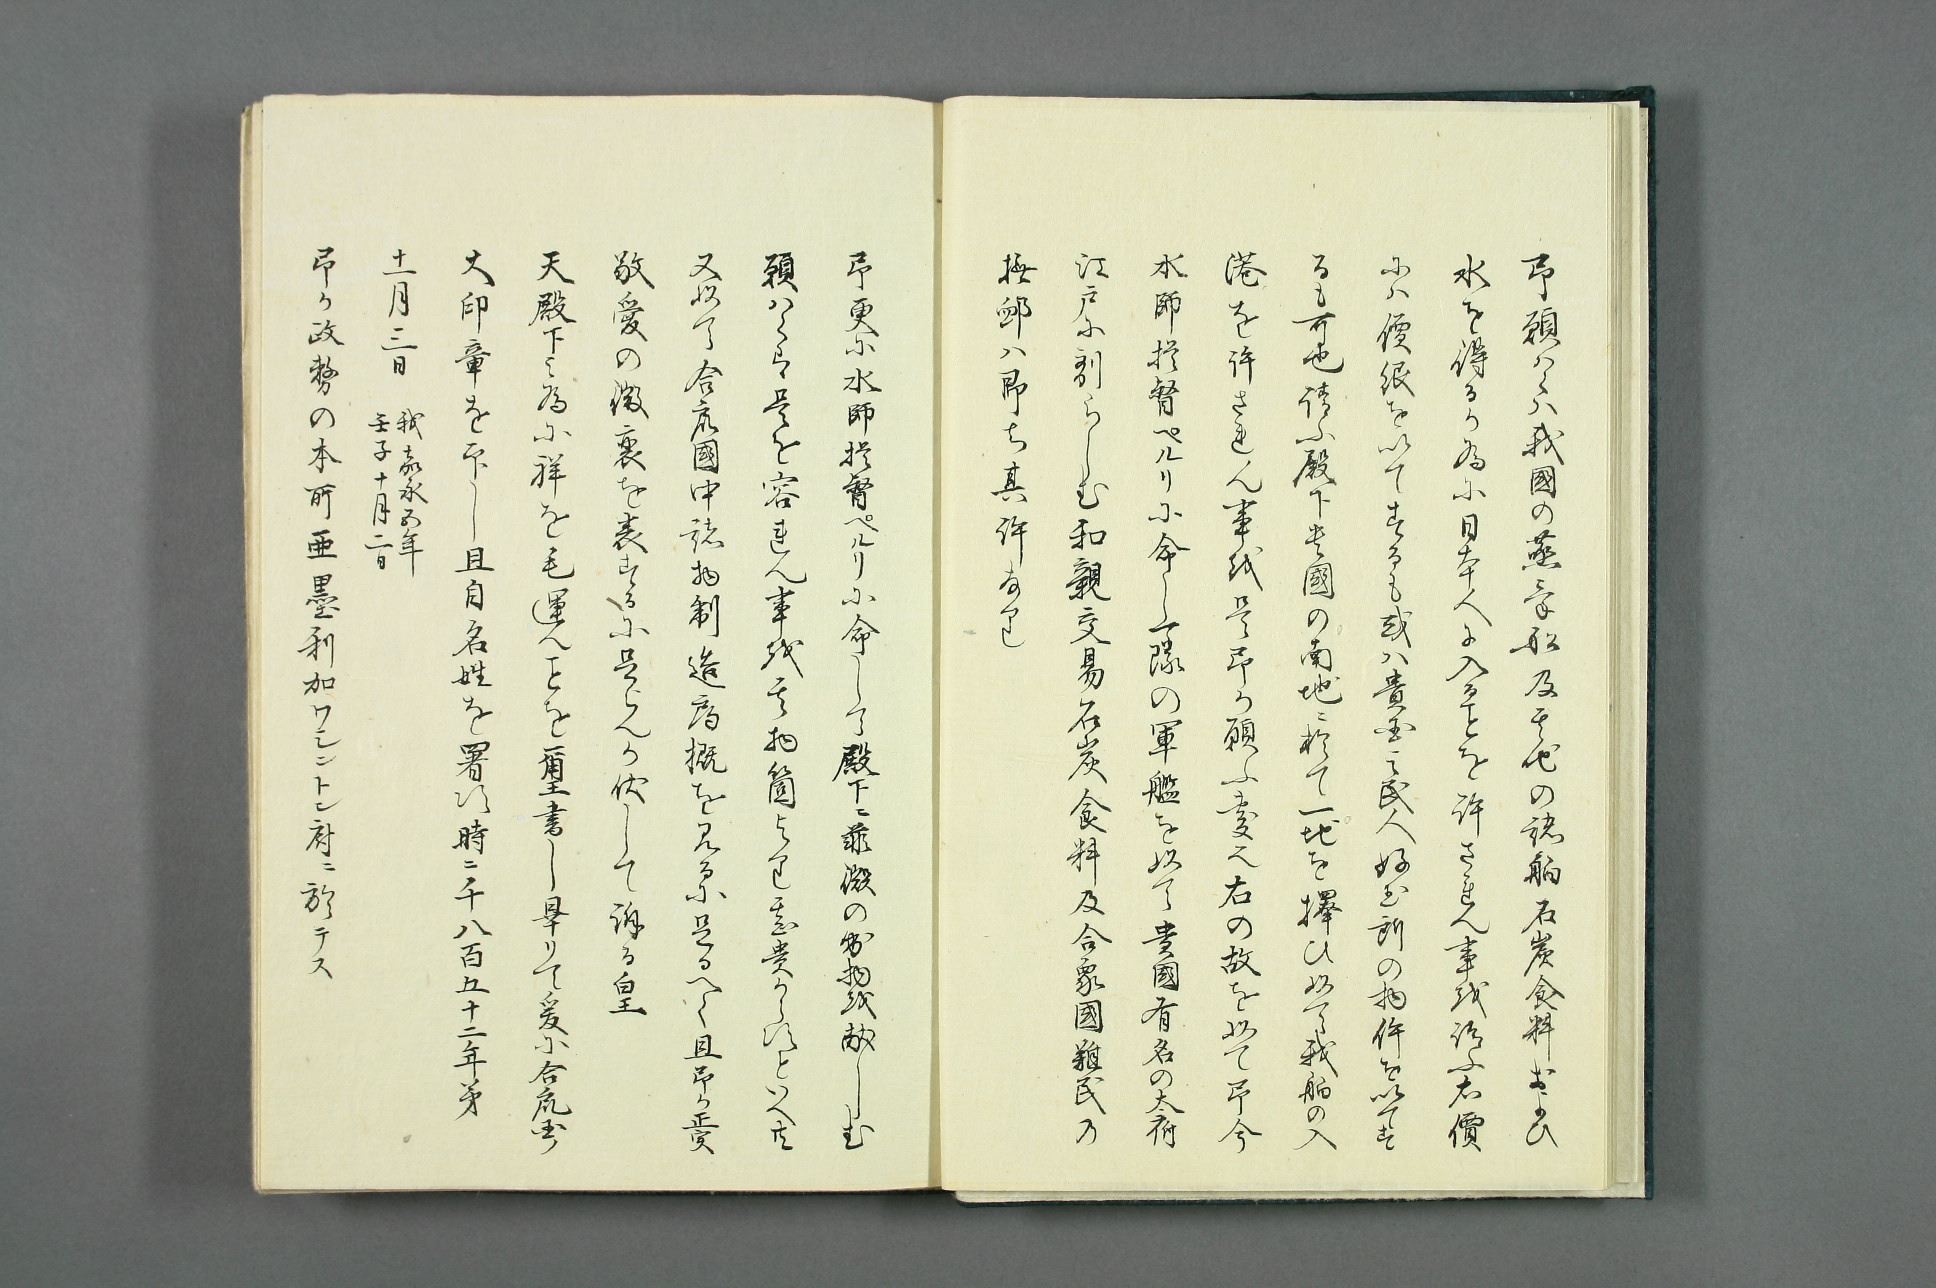 卬願ハくハ我國の蒸気船及其他の諸舶石炭食料及ひ
水を得るか為に日本人に入ることを許されん事を請ふ右價
にハ價銀を以てするも或ハ貴國之民人好む所の物件を以てす
るも可也請ふ殿下貴國の南地ニ於て一地を擇ひ以て我舶の入
港を許されん事を是卬か願ふ處也右の故を以て卬今
水師提督ペルリに命し一隊の軍艦を以て貴國有名の大府
江戸に到らしむ和親交易石炭食料及合衆國難民の
撫卹ハ即ち其許なり
卬更に水師提督ペルリに命して殿下ニ菲微の物を献しむ
願ハくハ是を容れん事を其物箇より貴からすといへ共
又以て合衆國中諸物制造の概を見るに足るへく且卬か
敬愛の微衷を表するに足らんか伏して祈る皇
天殿下之為に祥を毛運んことを璽書し畢りて爰に合衆國
大印章を卬し且自名姓を署す時ニ千八百五十二年第
十一月十三日 我嘉永五年
壬子十月二日
卬か政勢の本所亜墨利加ワシントン府ニ於テス